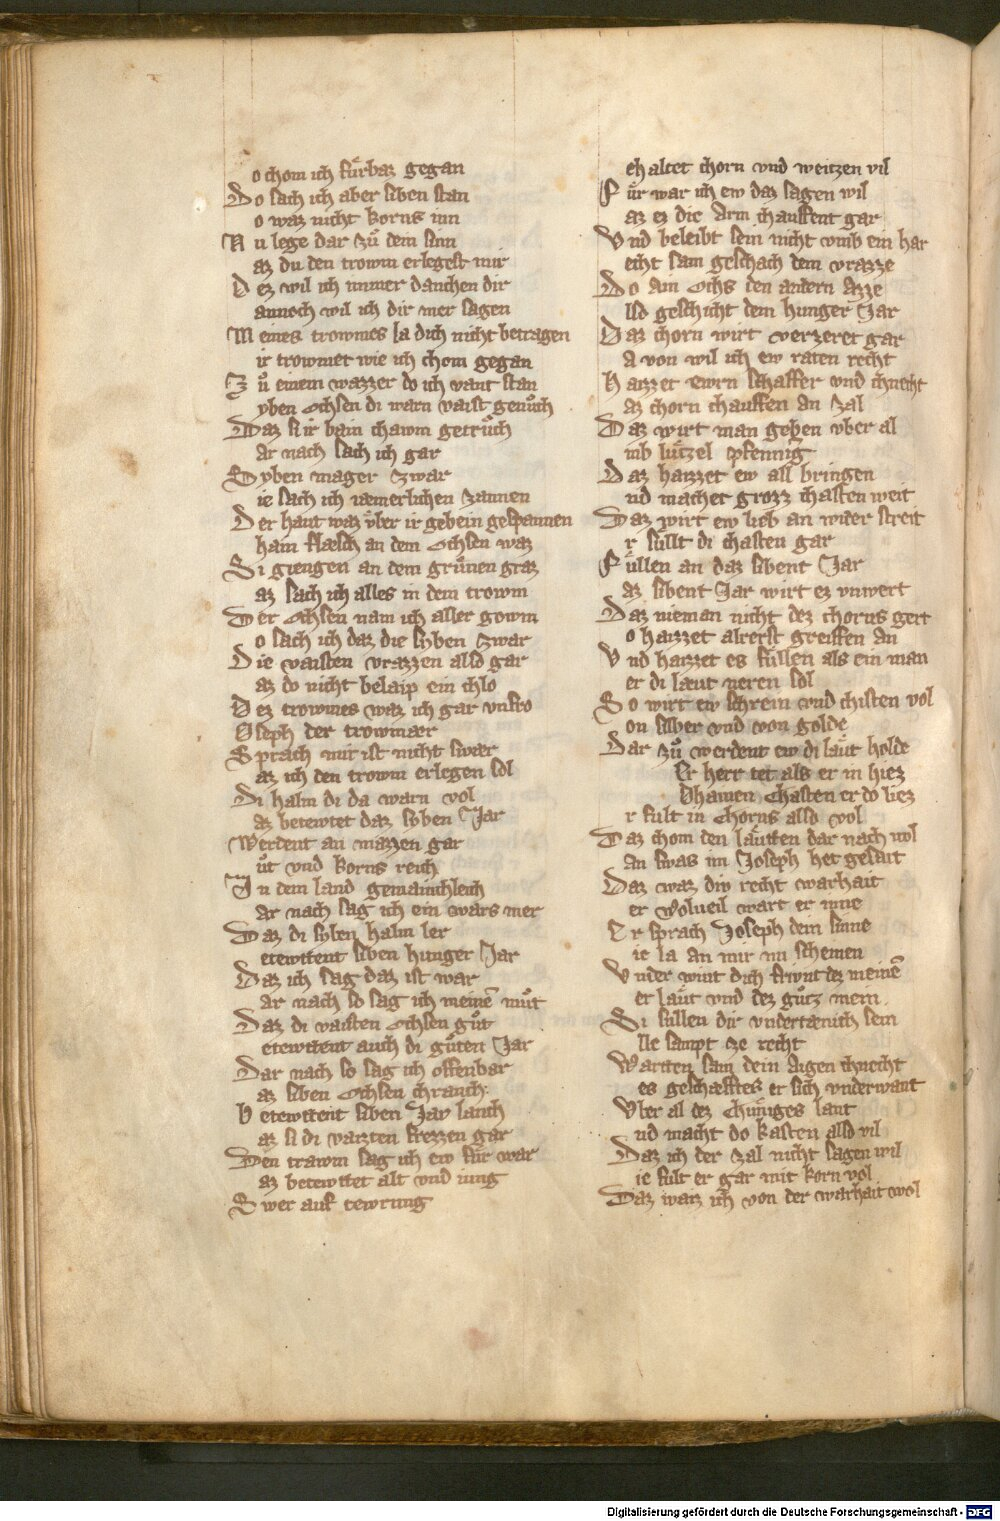 o chom ich fuͤrbaz gegan
Do sach ich aber siben stan
o waz nicht korns inn
Nu lege dar zuͦ dein sinn
az du den trowm erlegest mir
Dez wil ich immer danchen dir
annoch wil ich dir mer sagen
Meines trowmes la dich nicht betragen
ir trowmet wie ich chom gegan
Zuͦ einem wazzer do ich vant stan
yben Ochsen di warn vaist genuͦch
Daz si ir bain chawm getruͦch
ar nach sach ich gar
Syben mager zwar
ie sach ich iæmerlichen zannen
Der haut waz vͤber ir gebein gespannen
hain flæsch an dem Ochsen waz
Si giengen an dem gruͤnen graz
az sach ich alles in dem trowm
Der Ochsen nam ich aller gowm
o sach ich daz die syben zwar
Die vaisten vrazzen also gar
az do nicht belaip ein chlo
Dez trowmes waz ich gar vnfro
Oseph der trowmær
Sprach mir ist nicht swær
az ich den trowm erlegen sol
Di halm di da warn vol
az betewtet daz syben Jar
Werdent an mazzen gar
uͦt vnd korns reich
In dem land gemainchleich
ar nach sag ich ein wars mer
Daz di syben halm ler
etewttent siben hunger Jar
Daz ich sag daz ist war
ar nach so sag ich meinē muͦt
Daz di vaisten Ochsen guͦt
etewttent auch di guͦten Jar
Dar nach so sag ich offenbar
az siben Ochsen chranch
Betewttent siben Jar lanch
az si di vaizten frezzen gar
Den trawm sag ich ew fuͤr war
az betewttet alt vnd iung
Swer auf tewrung
ehaltet chorn vnd weitzen vil
Fuͤr war ich ew daz sagen wil
az ez die Arm chauffent gar
Vnd beleibt sein nicht vmb ein har
echt sam geschach dem vrazze
Do ain Ochs den andern azze
lso geschicht dem hunger Jar
Daz chorn wirt verzeret gar
a von wil ich ew raten recht
Haizzet ewrn schaffer vnd chnecht
az chorn chauffen an zal
Daz wirt man geben vber al
mb luͤtzel pfennig
Daz haizzet ew all bringen
nd machet grozz chasten weit
Daz wirt ew lieb an wider streit
r suͤllt di chasten gar
Fuͤllen an daz sibent Jar
az sibent Jar wirt ez vnwert
Daz nieman nicht dez chorns gert
o haizzet alrerst greiffen an
Vnd haizzet es fuͤllen als ein man
er di laut neren sol
So wirt ew schrein vnd chisten vol
on silber vnd von golde
Dar zuͦ werdent ew di laͤut holde
Er herr tet als er in hiez
Dhainen Chasten er do liez
r fult in Chorns also vol
Daz chom den laͤutten dar nach wol
an swas im Joseph het gesait
Daz waz div recht warhait
er volueil wart er inne
Er sprach Joseph dein sinne
ie la an mir nu scheinen
Vnder wint dich frivnt dez meinē
er laͤut vnd dez guͦtz mein
Si sullen dir vndertænich sein
lle sampt ze recht
Wartten sam dein aigen chnecht
es geschæfftes er sich vnderwant
Vber al dez Chuͤniges lant
nd macht do kasten also vil
Daz ich der zal nicht sagen wil
ie fult er gar mit korn vol
Daz waiz ich von der warhait wol
Digitalisierung gefördert durch die Deutsche Forschungsgemeinschaft - DFG